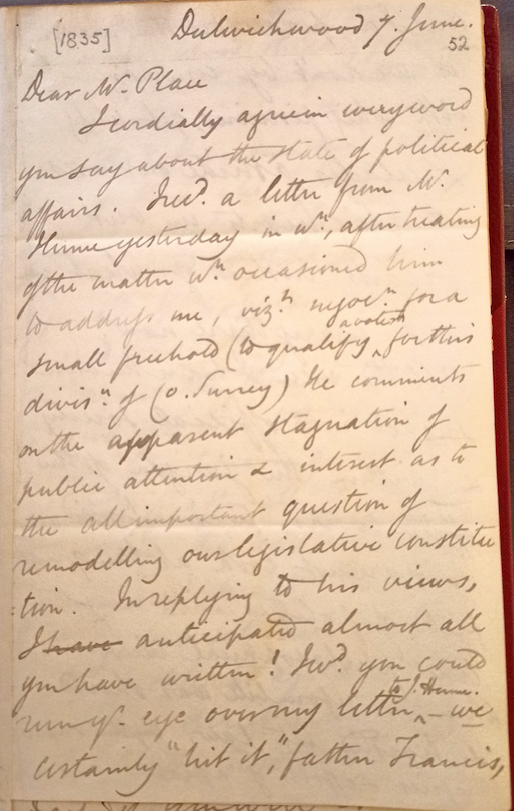 [1835] Dulwichwood 7. June.
52
Dear Mr. Place
I cordially agree in every word
you say about the state of political
affairs. I recd. a letter from Mr.
Hume yesterday in wh., after treating
of the matter wh. occasioned him
to address me, vizt. negocn. for a
a voter
small freehold (to qualify ^ for this
divisn. of Co. Surrey) He comments
on the apparent stagnation of
public attention & interest as to
the all important question of
remodelling our legislative constitu
tion. In replying to his views,
I have anticipated almost all
you have written! I wd. you could
to J. Hume.
run yr. eye over my letter ^ – we
certainly "hit it," father Francis,